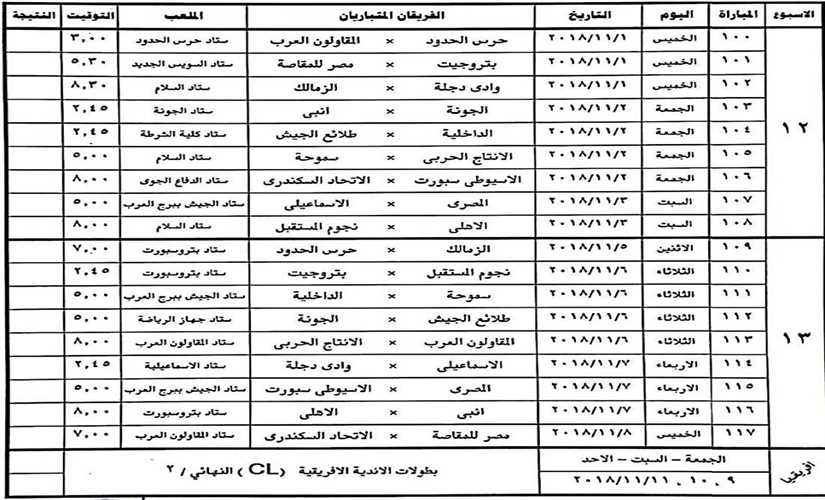 الاسبوع المباراة اليوم التاريخ الفريقان المتباريان الملعب التوقيت النتيجة
١٢
١٠٠ الخميس ٢٠١٨/١١/١ حرس الحدود × المقاولون العرب ستاد حرس الحدود ٣,٠٠
١٠١ الخميس ٢٠١٨/١١/١ بتروجيت × مصر للمقاصة ستاد السويس الجديد ٥,٣٠
١٠٢ الخميس ٢٠١٨/١١/١ وادى دجلة × الزمالك ستاد السلام ٨,٣٠
١٠٣ الجمعة ٢٠١٨/١١/٢ الجونة × انبى ستاد الجونة ٢,٤٥
١٠٤ الجمعة ٢٠١٨/١١/٢ الداخلية × طلائع الجيش ستاد كلية الشرطة ٢,٤٥
١٠٥ الجمعة ٢٠١٨/١١/٢ الانتاج الحربى × سموحة ستاد السلام ٥,٠٠
١٠٦ الجمعة ٢٠١٨/١١/٢ الاسيوطى سبورت × الاتحاد السكندرى ستاد الدفاع الجوى ٨,٠٠
١٠٧ السبت ٢٠١٨/١١/٣ المصرى × الاسماعيلى ستاد الجيش ببرج العرب ٥,٠٠
١٠٨ السبت ٢٠١٨/١١/٣ الاهلى × نجوم المستقبل ستاد السلام ٨,٠٠
١٣
١٠٩ الاثنين ٢٠١٨/١١/٥ الزمالك × حرس الحدود ستاد بتروسبورت ٧,٠٠
١١٠ الثلاثاء ٢٠١٨/١١/٦ نجوم المستقبل × بتروجيت ستاد بتروسبورت ٢,٤٥
١١١ الثلاثاء ٢٠١٨/١١/٦ سموحة × الداخلية ستاد الجيش ببرج العرب ٥,٠٠
١١٢ الثلاثاء ٢٠١٨/١١/٦ طلائع الجيش × الجونة ستاد جهاز الرياضة ٥,٠٠
١١٣ الثلاثاء ٢٠١٨/١١/٦ المقاولون العرب × الانتاج الحربى ستاد المقاولون العرب ٨,٠٠
١١٤ الاربعاء ٢٠١٨/١١/٧ الاسماعيلى × وادى دجلة ستاد الاسماعيلية ٢,٤٥
١١٥ الاربعاء ٢٠١٨/١١/٧ المصرى × الاسيوطى سبورت ستاد الجيش ببرج العرب ٥,٠٠
١١٦ الاربعاء ٢٠١٨/١١/٧ انبى × الاهلى ستاد بتروسبورت ٨,٠٠
١١٧ الخميس ٢٠١٨/١١/٨ مصر للمقاصة × الاتحاد السكندرى ستاد المقاولون العرب ٧,٠٠
افريقيا
الجمعة – السبت – الاحد
٩ , ١٠ , ٢٠١٨/١١/١١
بطولات الاندية الافريقية (CL) النهائي / ٢